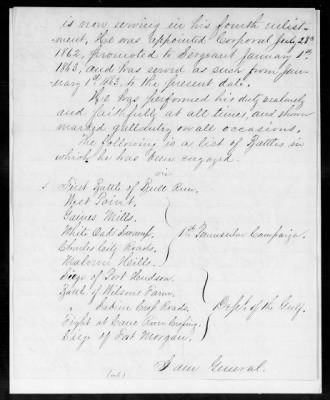 is now serving in his fourth enlist-
ment, He was appointed Corporal July 28th
1862, promoted to Sergeant January 1st
1863, and has served as such from Jan-
uary 1st 863, to the present date.
He has performed his duty zealously
and faithfully at all times, and shown
marked gallantry on all occasions.
The following is a list of Battles in
which he has been engaged.
First Battle of Bull Run.
West Point.
Gaines Mills.
White Oak Swamp.
Charles City Roads.
Malvern Hills.
1st Peninsular Campaign.
Siege of Port Hudson.
Battle of Wilsons Farm.
" Sabine Cross Roads.
Fight at Cane River Crossing.
Siege of Fort Morgan.
Dept. of the Gulf.
I am General.